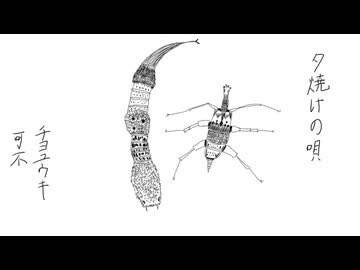 夕焼けの唄
チヨユウキ
可不